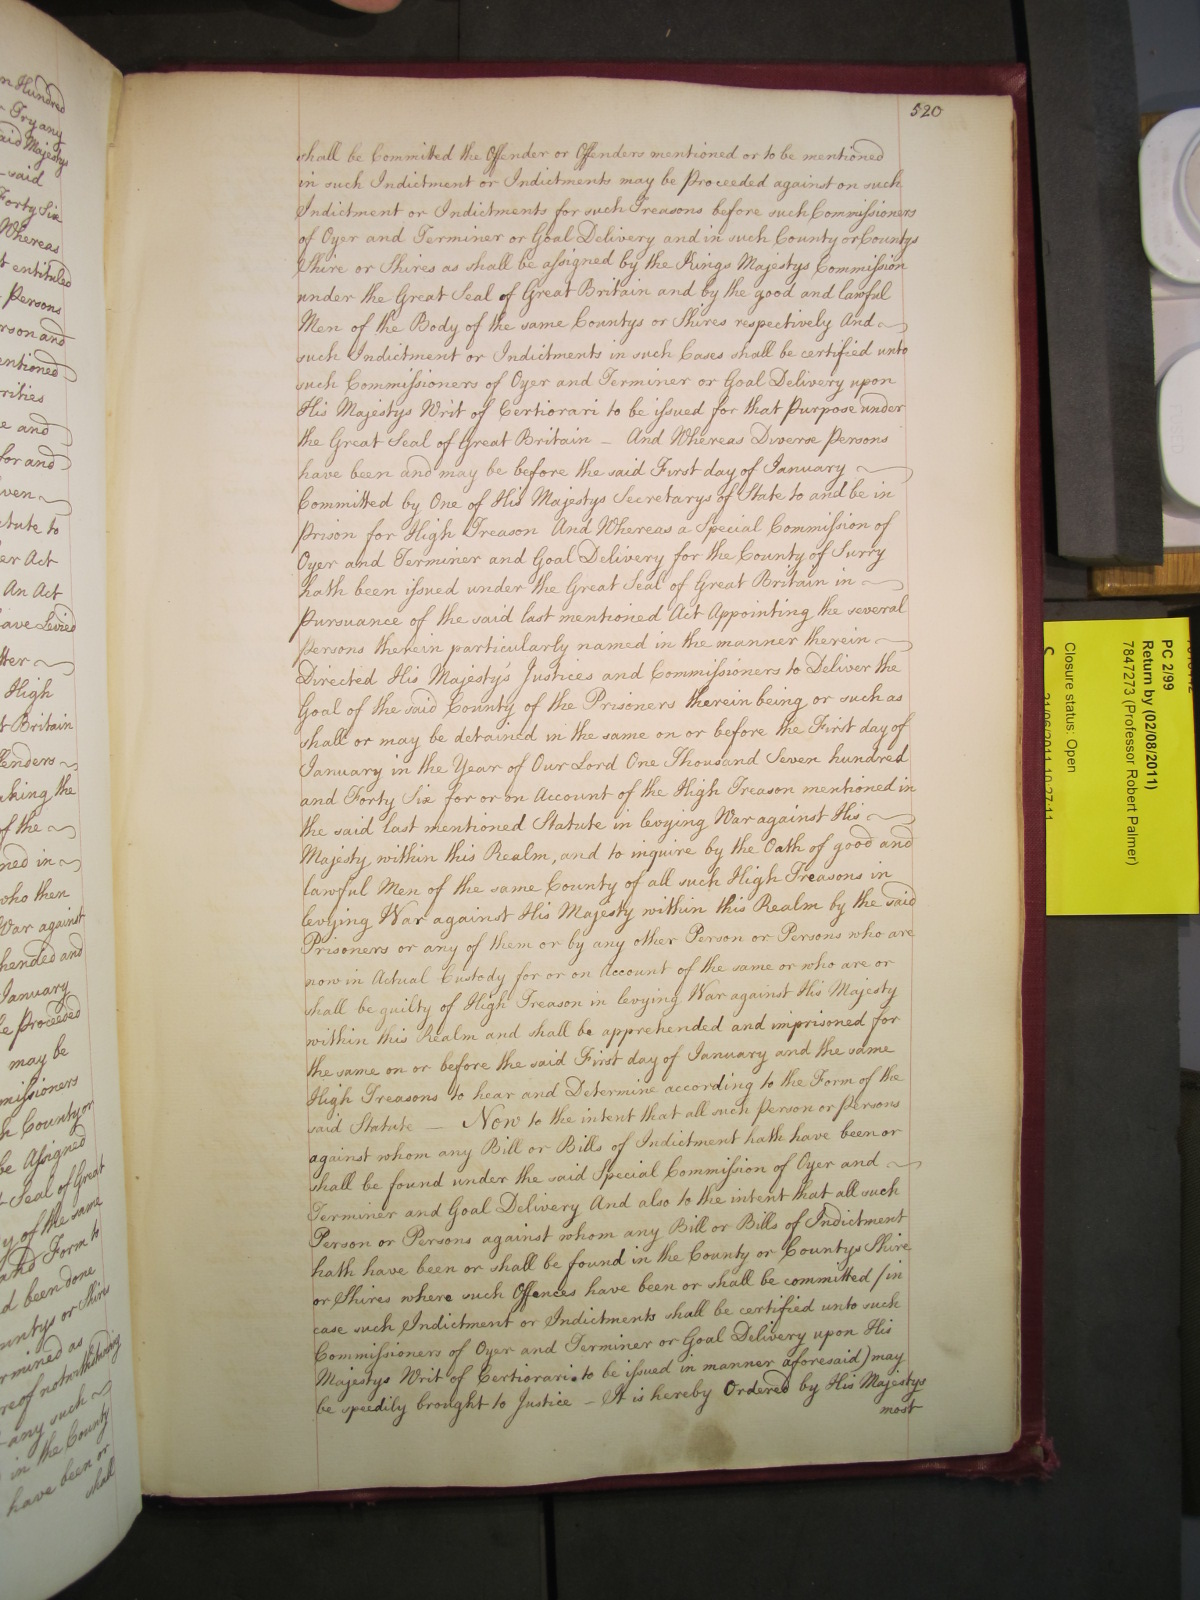 n Hundred
Try any
said Majestys
said
Forty Six
Whereas
t entituled
Persons
rson and
entioned
rities
e and
for and
ven
tute to
er Act
An Act
ave Levied
tter
High
t Britain
fenders
aking the
of the
ned in
who then
War against
hended and
January
be Proceeded
may be
missioners
h County or
be Assigned
Seal of Great
y of the same
and Form to
d been done
ountys or Shire
rmined as
reof notwithstanding
any such
in the County
have been or
shall
520
shall be Committed the Offender or Offenders mentioned or to be mentioned
in such Indictment or Indictments may be Proceeded against on such
Indictment or Indictments for such Treasons before such Commissioners
of Oyer and Terminer or Goal Delivery and in such County or Countys
Shire or Shires as shall be assigned by the Kings Majestys Commission
under the Great Seal of Great Britain and by the good and lawful
Men of the Body of the same Countys or Shires respectively And
such Indictment or Indictments in such Cases shall be certified unto
such Commissioners of Oyer and Terminer or Goal Delivery upon
His Majestys Writ of Certiorari to be issued for that Purpose under
the Great Seal of Great Britain — And Whereas Diverse Persons
have been and may be before the said First day of January
Committed by One of His Majestys Secretarys of State to and be in
Prison for High Treason And Whereas a Special Commission of
Oyer and Terminer and Goal Delivery for the County of Surry
hath been issued under the Great Seal of Great Britain in
Pursuance of the said last mentioned Act Appointing the several
Persons therein particularly named in the manner therein
Directed His Majesty's Justices and Commissioners to Deliver the
Goal of the said County of the Prisoners therein being or such as
shall or may be detained in the same on or before the First day of
January in the Year of Our Lord One Thousand Seven hundred
and Forty Six for or on Account of the High Treason mentioned in
the said last mentioned Statute in levying War against His
Majesty within this Realm, and to inquire by the Oath of good and
lawful Men of the same County of all such High Treasons in
levying War against His Majesty within this Realm by the said
Prisoners or any of them or by any other Person or Persons who are
now in Actual Custody for or on Account of the same or who are or
shall be guilty of High Treason in levying War against His Majesty
within this Realm and shall be apprehended and imprisoned for
the same on or before the said First day of January and the same
High Treasons to hear and Determine according to the Form of the
said Statute — Now to the intent that all such Person or Persons
against whom any Bill or Bills of Indictment hath have been or
shall be found under the said Special Commission of Oyer and
Terminer and Goal Delivery And also to the intent that all such
Person or Persons against whom any Bill or Bills of Indictment
hath have been or shall be found in the County or Countys Shire
or Shires where such Offences have been or shall be committed (in
case such Indictment or Indictments shall be certified unto such
Commissioners of Oyer and Terminer or Goal Delivery upon His
Majestys Writ of Certiorari to be issued in manner aforesaid) may
be speedily brought to Justice — It is hereby Ordered by His Majestys
most
PC 2/99
Return by (02/08/2011)
7847273 (Professor Robert Palmer)
Closure status: Open
21/06/2011 10:27:11